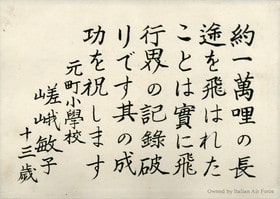 約一萬哩の長
途を飛はれた
ことは實に飛
行界の記錄破
りです其の成
功を祝します
元町小學校
嵯峨敏子
十三歲
Owned by Italian Air Force